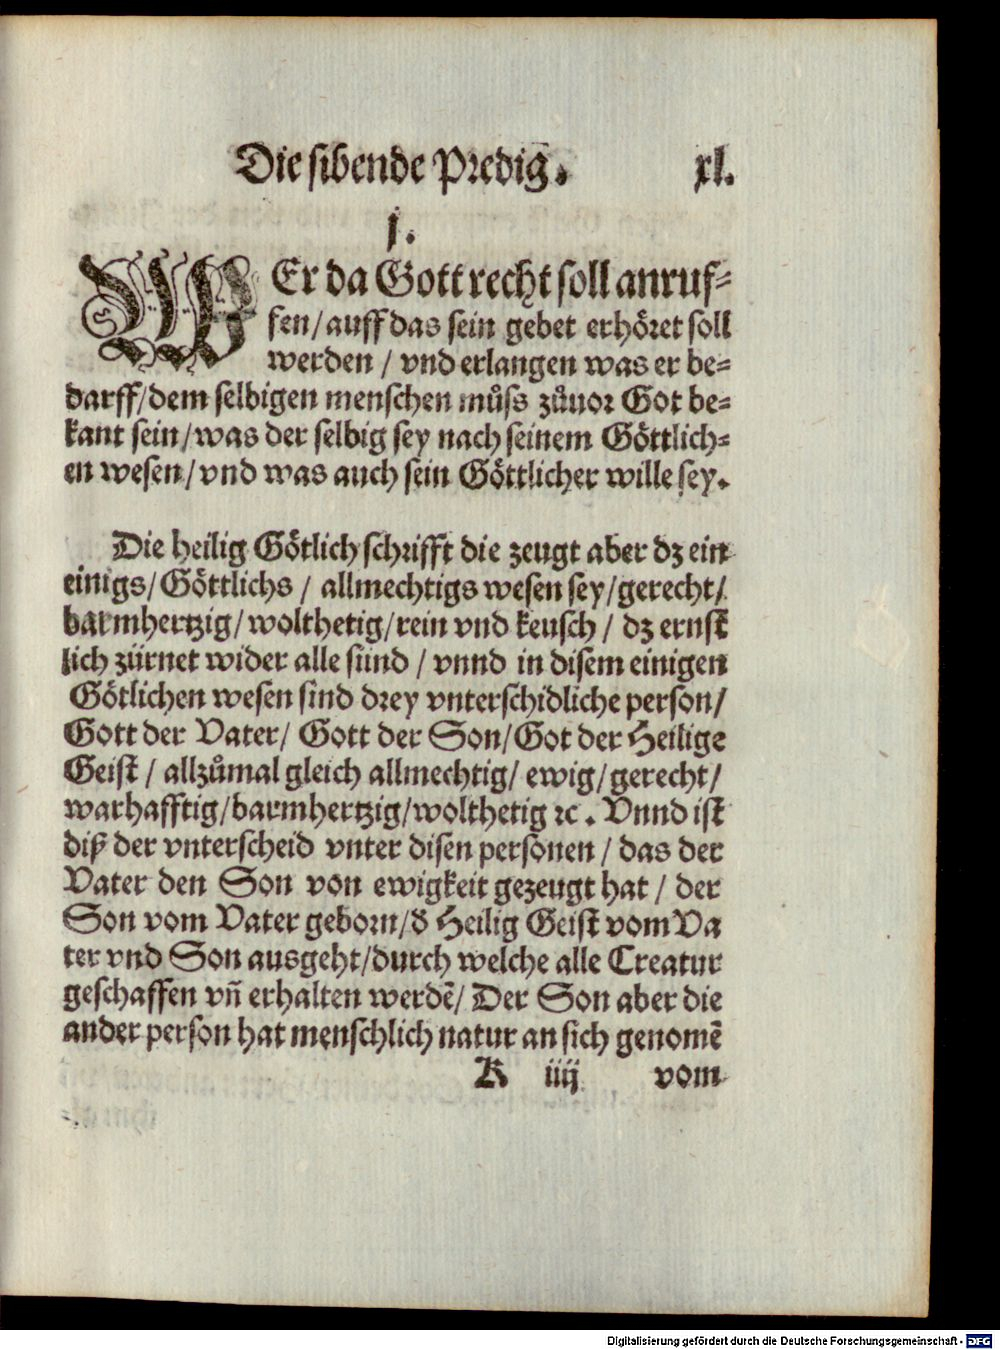 Die sibende Predig. xl.
j.
WEr da Gott recht soll anruf⸗
fen/auff das sein gebet erhöret soll
werden / vnd erlangen was er be⸗
darff/dem selbigen menschen můß zůuor Got be⸗
kant sein/was der selbig sey nach seinem Göttlich⸗
en wesen/vnd was auch sein Göttlicher wille sey.
Die heilig Götlich schrifft die zeugt aber dz ein
einigs/Göttlichs / allmechtigs wesen sey/gerecht/
barmhertzig/wolthetig/rein vnd keusch / dz ernst
lich zürnet wider alle sünd / vnnd in disem einigen
Götlichen wesen sind drey vnterschidliche person/
Gott der Vater/ Gott der Son/Got der Heilige
Geist / allzůmal gleich allmechtig/ ewig/gerecht/
warhafftig/barmhertzig/wolthetig ꝛc. Vnnd ist
diß der vnterscheid vnter disen personen / das der
Vater den Son von ewigkeit gezeugt hat / der
Son vom Vater geborn/d̕ Heilig Geist vom Va
ter vnd Son ausgeht/durch welche alle Creatur
geschaffen vñ erhalten werdẽ/ Der Son aber die
ander person hat menschlich natur an sich genomẽ
K iiij vom
Digitalisierung gefördert durch die Deutsche Forschungsgemeinschaft - DFG